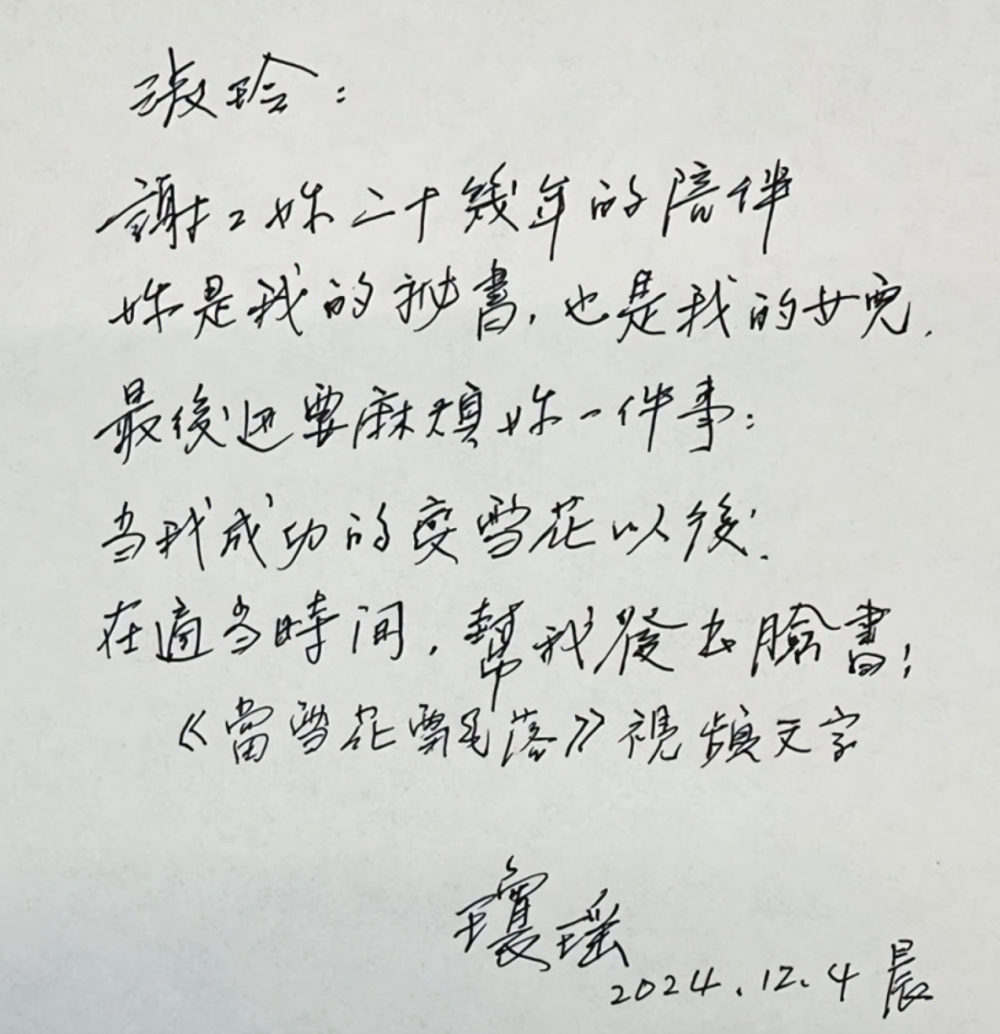 淑玲：
謝謝妳二十幾年的陪伴
妳是我的秘書，也是我的女兒．
最後还要麻煩妳一件事：
当我成功的变雪花以後．
在適当時间，幫我發去臉書；
《當雪花飄落》視頻文字
瓊瑤
2024.12.4 晨